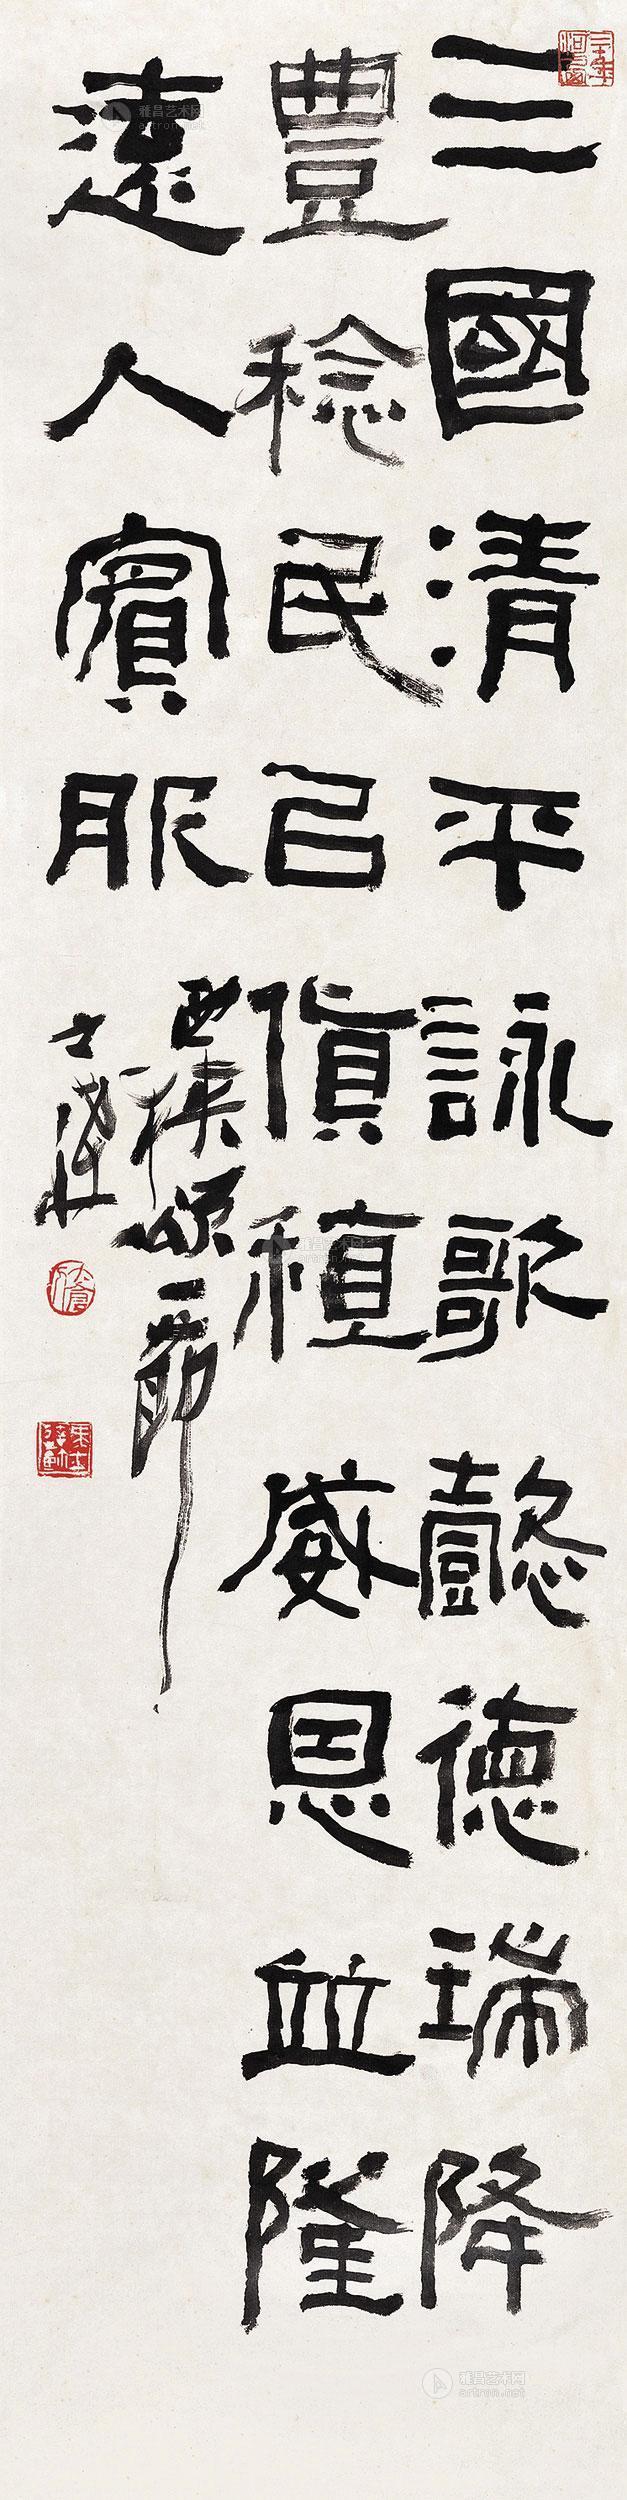 三國清平詠歌懿德瑞降
豐稔民㠯貨稙威恩並隆
遠人賓服
西狹頌一節
雅昌艺术网
artron.net